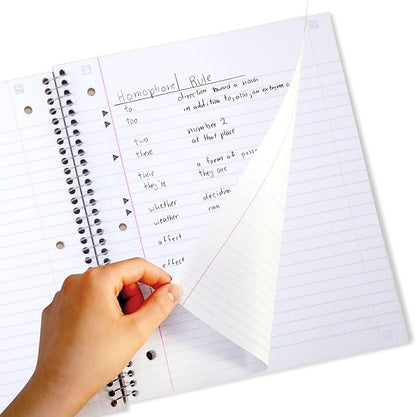 Homophone Rule
to direction toward a noun
too in addition to, also, an extreme
two number 2
there at that place
their a form of poss
they're they are
whether decision
weather rain
affect
effect